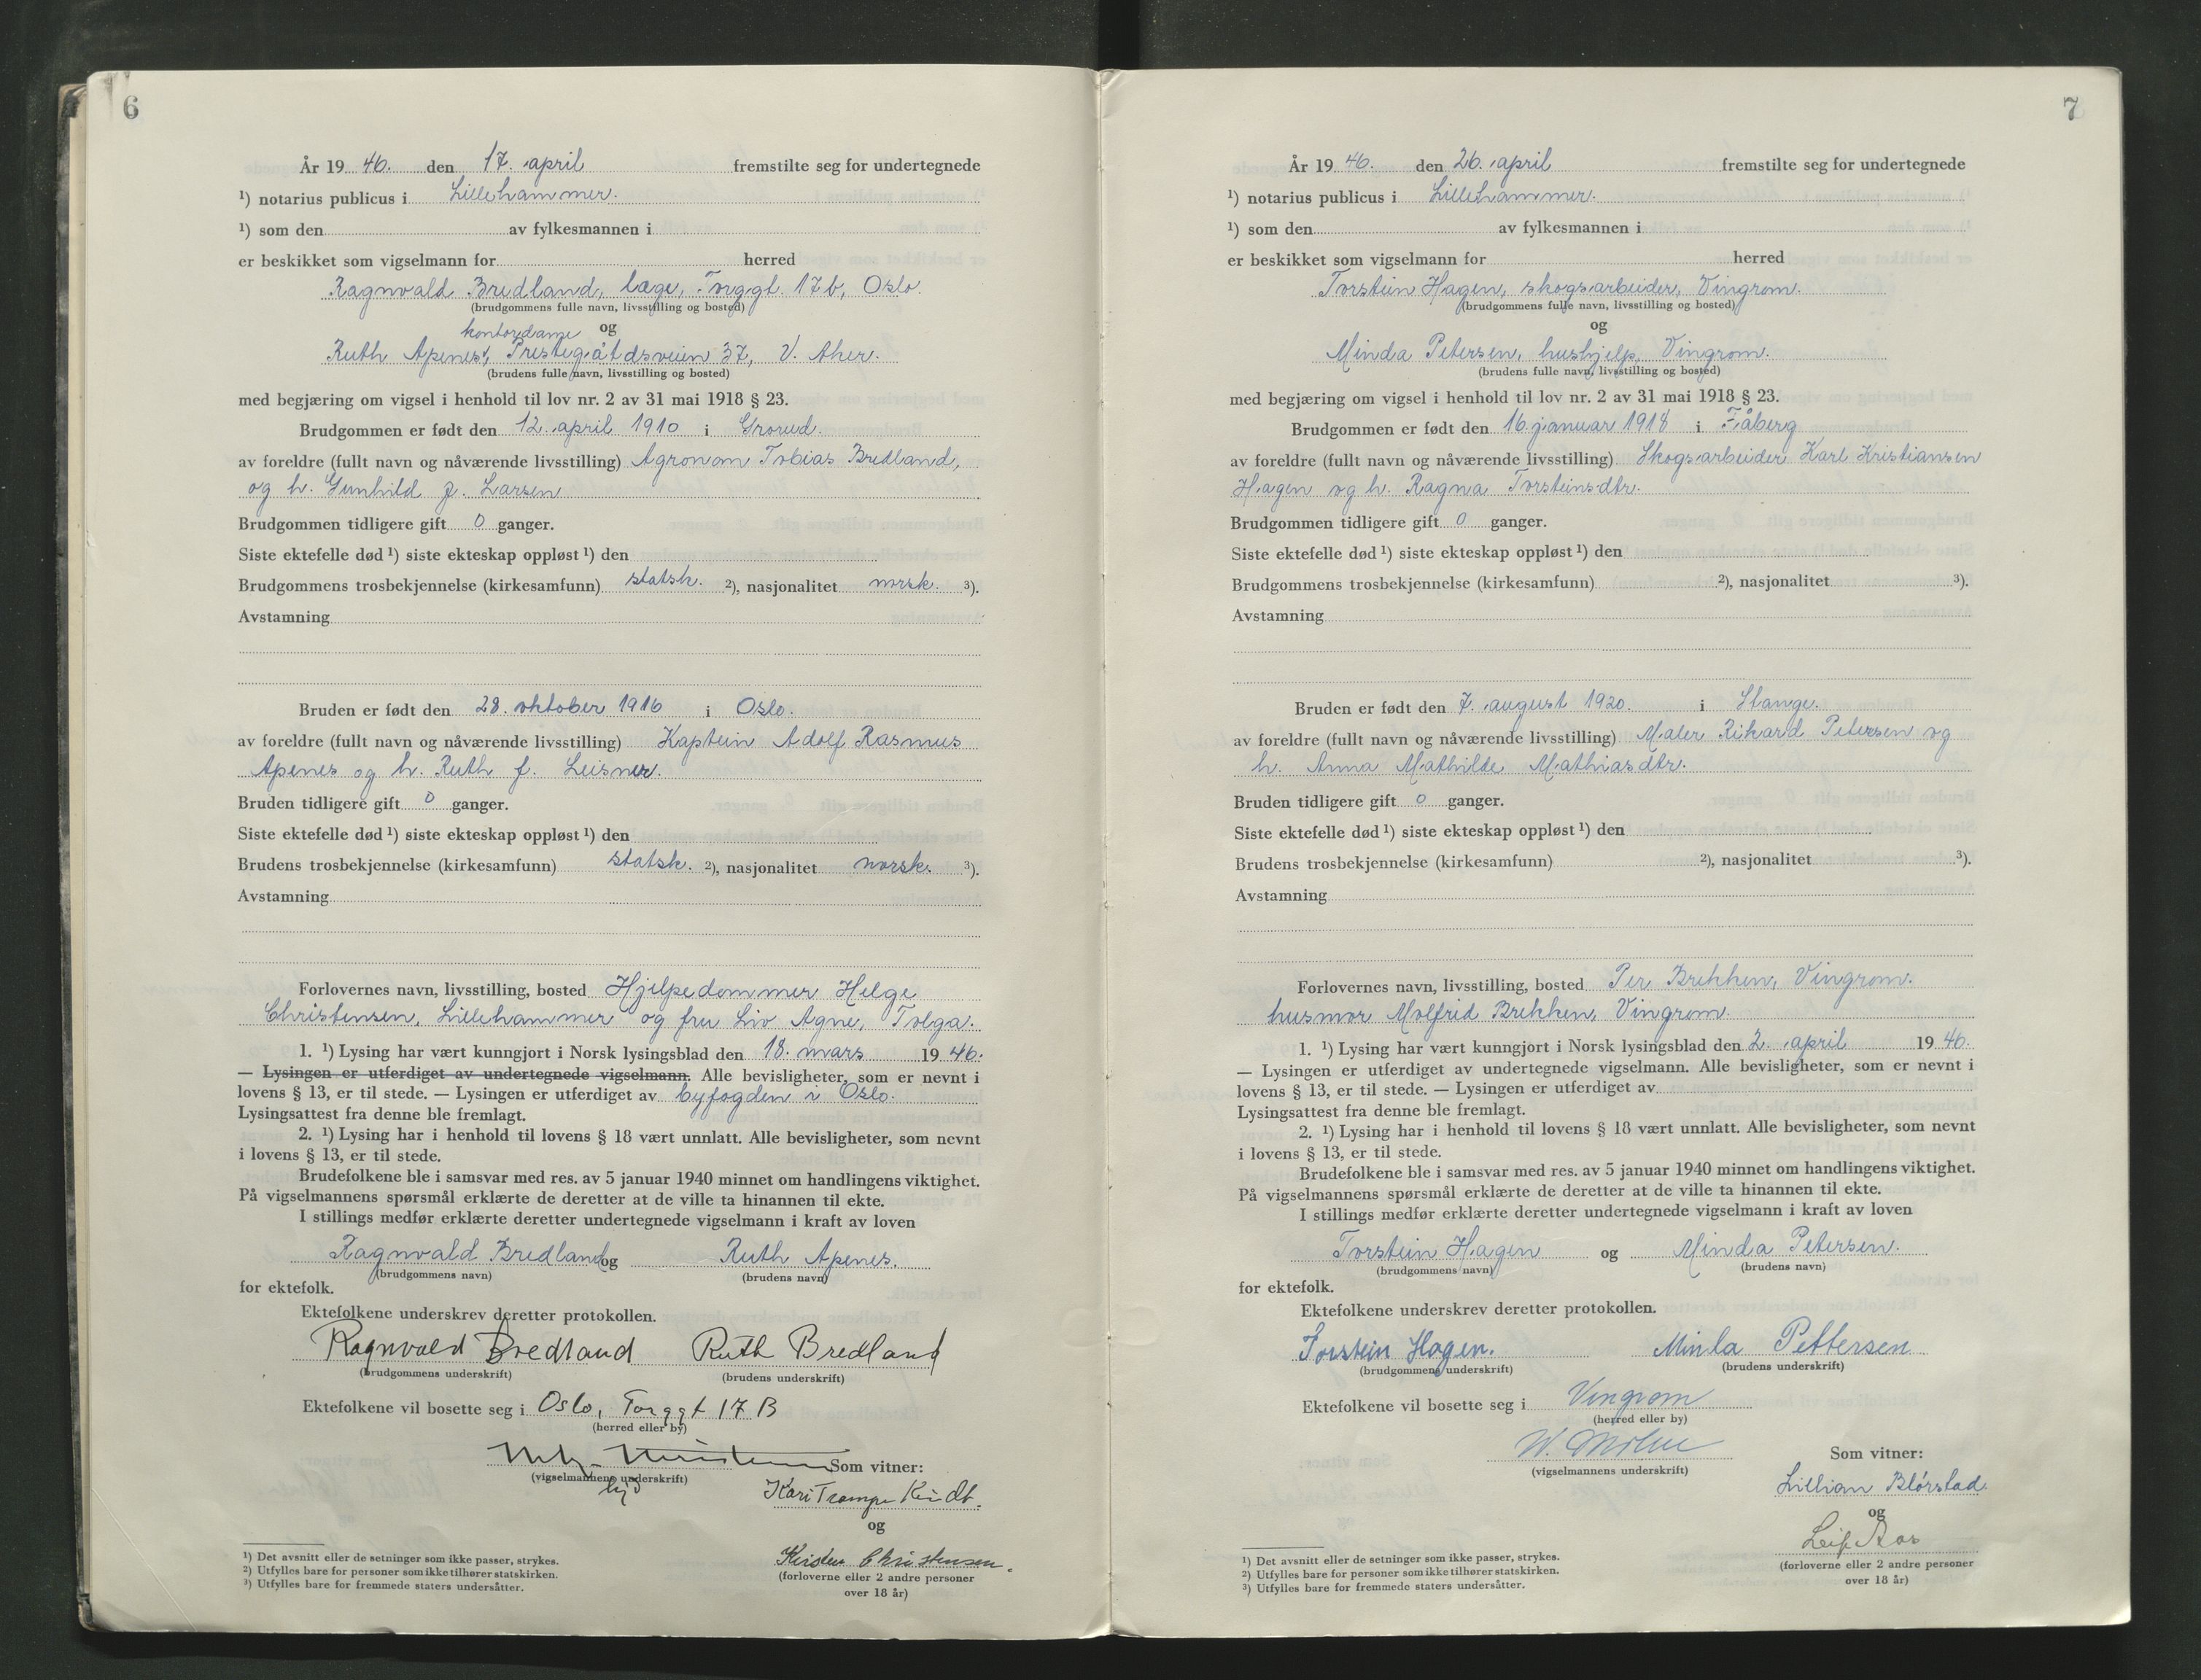 6
År 19 46. den 17. april fremstilte seg for undertegnede
¹) notarius publicus i Lillehammer.
¹) som den av fylkesmannen i
er beskikket som vigselmann for herred
Ragnvald Bredland, læge, Torggt. 17b, Oslo.
(brudgommens fulle navn, livsstilling og bosted)
kontordame og
Ruth Apenes, Prestegårdsveien 37, V. Aker.
(brudens fulle navn, livsstilling og bosted)
med begjæring om vigsel i henhold til lov nr. 2 av 31 mai 1918 § 23.
Brudgommen er født den 12. april 1910 i Grorud.
av foreldre (fullt navn og nåværende livsstilling) Agronom Tobias Bredland,
og h. Gunhild f. Larsen
Brudgommen tidligere gift 0 ganger.
Siste ektefelle død ¹) siste ekteskap oppløst ¹) den
Brudgommens trosbekjennelse (kirkesamfunn) statsk. ²), nasjonalitet norsk. ³).
Avstamning
Bruden er født den 28. oktober 1916 i Oslo.
av foreldre (fullt navn og nåværende livsstilling) Kaptein Adolf Rasmus
Apenes og h. Ruth f. Leisner.
Bruden tidligere gift 0 ganger.
Siste ektefelle død ¹) siste ekteskap oppløst ¹) den
Brudens trosbekjennelse (kirkesamfunn) statsk. ²), nasjonalitet norsk. ³).
Avstamning
Forlovernes navn, livsstilling, bosted Hjelpedommer Helge
Christensen, Lillehammer og fru Liv Agne, Tolga.
1. ¹) Lysing har vært kunngjort i Norsk lysingsblad den 18. mars 19 46.
— Lysingen er utferdiget av undertegnede vigselmann. Alle bevisligheter, som er nevnt i
lovens § 13, er til stede. — Lysingen er utferdiget av byfogden i Oslo.
Lysingsattest fra denne ble fremlagt.
2. ¹) Lysing har i henhold til lovens § 18 vært unnlatt. Alle bevisligheter, som nevnt
i lovens § 13, er til stede.
Brudefolkene ble i samsvar med res. av 5 januar 1940 minnet om handlingens viktighet.
På vigselmannens spørsmål erklærte de deretter at de ville ta hinannen til ekte.
I stillings medfør erklærte deretter undertegnede vigselmann i kraft av loven
Ragnvald Bredland og Ruth Apenes.
(brudgommens navn) (brudens navn)
for ektefolk.
Ektefolkene underskrev deretter protokollen.
Ragnvald Bredland Ruth Bredland
(brudgommens underskrift) (brudens underskrift)
Ektefolkene vil bosette seg i Oslo, Torggt 17 B
(herred eller by)
Som vitner:
(vigselmannens underskrift)
Kari Trampe Kindt.
og
Kirsten Christensen.
(forloverne eller 2 andre personer
over 18 år)
¹) Det avsnitt eller de setninger som ikke passer, strykes.
²) Utfylles bare for personer som ikke tilhører statskirken.
³) Utfylles bare for fremmede staters undersåtter.
7
År 19 46. den 26. april fremstilte seg for undertegnede
¹) notarius publicus i Lillehammer.
¹) som den av fylkesmannen i
er beskikket som vigselmann for herred
Torstein Hagen, skogsarbeider, Vingrom.
(brudgommens fulle navn, livsstilling og bosted)
og
Minda Petersen, hushjelp, Vingrom.
(brudens fulle navn, livsstilling og bosted)
med begjæring om vigsel i henhold til lov nr. 2 av 31 mai 1918 § 23.
Brudgommen er født den 16. januar 1918 i Fåberg
av foreldre (fullt navn og nåværende livsstilling) Skogsarbeider Karl Kristiansen
Hagen og h. Ragna Torsteinsdtr.
Brudgommen tidligere gift 0 ganger.
Siste ektefelle død ¹) siste ekteskap oppløst ¹) den
Brudgommens trosbekjennelse (kirkesamfunn) ²), nasjonalitet ³).
Avstamning
Bruden er født den 7. august 1920. i Stange.
av foreldre (fullt navn og nåværende livsstilling) Maler Rikard Petersen og
h. Anna Mathilde Mathiasdtr.
Bruden tidligere gift 0 ganger.
Siste ektefelle død ¹) siste ekteskap oppløst ¹) den
Brudens trosbekjennelse (kirkesamfunn) ²), nasjonalitet ³).
Avstamning
Forlovernes navn, livsstilling, bosted Per Brekken, Vingrom.
husmor Molfrid Brekken, Vingrom.
1. ¹) Lysing har vært kunngjort i Norsk lysingsblad den 2. april 19 46.
— Lysingen er utferdiget av undertegnede vigselmann. Alle bevisligheter, som er nevnt i
lovens § 13, er til stede. — Lysingen er utferdiget av
Lysingsattest fra denne ble fremlagt.
2. ¹) Lysing har i henhold til lovens § 18 vært unnlatt. Alle bevisligheter, som nevnt
i lovens § 13, er til stede.
Brudefolkene ble i samsvar med res. av 5 januar 1940 minnet om handlingens viktighet.
På vigselmannens spørsmål erklærte de deretter at de ville ta hinannen til ekte.
I stillings medfør erklærte deretter undertegnede vigselmann i kraft av loven
Torstein Hagen og Minda Petersen.
(brudgommens navn) (brudens navn)
for ektefolk.
Ektefolkene underskrev deretter protokollen.
Torstein Hagen. Minda Pettersen
(brudgommens underskrift) (brudens underskrift)
Ektefolkene vil bosette seg i Vingrom
(herred eller by)
Som vitner:
(vigselmannens underskrift)
Lillian Blørstad
og
Leif Aas
(forloverne eller 2 andre personer
over 18 år)
¹) Det avsnitt eller de setninger som ikke passer, strykes.
²) Utfylles bare for personer som ikke tilhører statskirken.
³) Utfylles bare for fremmede staters undersåtter.